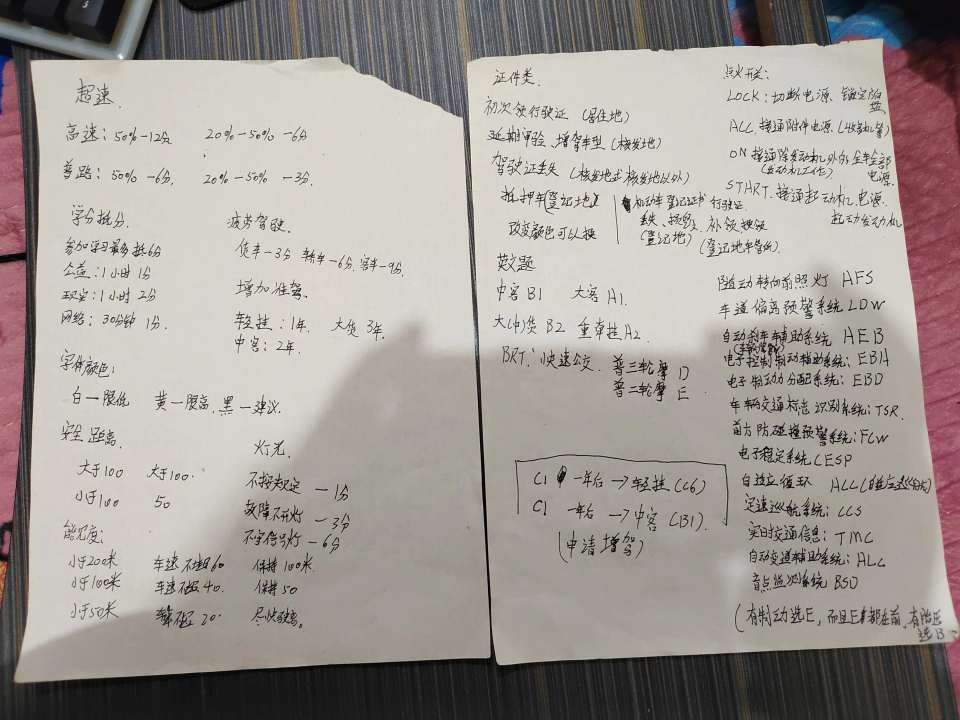 超速.
高速: 50%-12分 20%-50% -6分
普路: 50% -6分, 20%-50% -3分,
学分抵分.
参加学习最多抵6分
公益: 1小时1分
现定: 1小时2分
网络: 30分钟 1分.
疲劳驾驶.
货车-3分 轿车-6分 客车-9分.
增加准驾.
轻挂: 1年. 大货 3年.
中客: 2年.
字体颜色:
白-限低 黄-限高, 黑-建议.
安全距离.
大于100 大于100.
小于100 50
灯光.
不按规定 -1分
故障不开灯 -3分
信号灯 -6分
能见度:
小于200米 车速不超60 保持100米.
小于100米 车速不超40. 保持50
小于50米 不超20. 尽快驶离。
证件类.
初次领行驶证 (居住地)
延期审验、增驾车型 (核发地)
驾驶证丢失 (核发地或核发地以外)
抵押车(登记地)
改变颜色可以换
机动车登记证书 行驶证
丢失、损毁, 补领换领
(登记地) (登记地车管所)
英文题
中客 B1 大客 A1.
大(中)货 B2 重牵挂A2.
BRT: 快速公交.
普三轮摩 D
普二轮摩 E
C1 一年后 → 轻挂 (C6)
C1 一年后 → 中客 (B1).
(申请增驾)
点火开关:
LOCK: 切断电源. 锁定方向盘
ACC. 接通附件电源. (收音机等)
ON 接通除发动机外的全车全部电源.
(发动机工作)
START. 接通起动机.电源.
起动发动机
随动转向前照灯 AFS
车道偏离预警系统 LDW
自动刹车辅助系统 AEB
电子控制制动辅助系统: EBA
电子制动力分配系统: EBD
车辆交通标志识别系统: TSR
前方防碰撞预警系统: FCW
电子稳定系统 CESP
定速巡航系统: CCS
实时交通信息: TMC
自动变道辅助系统: ALC
盲点监测系统 BSD
(有制动选E, 而且E都在前, 有
选B